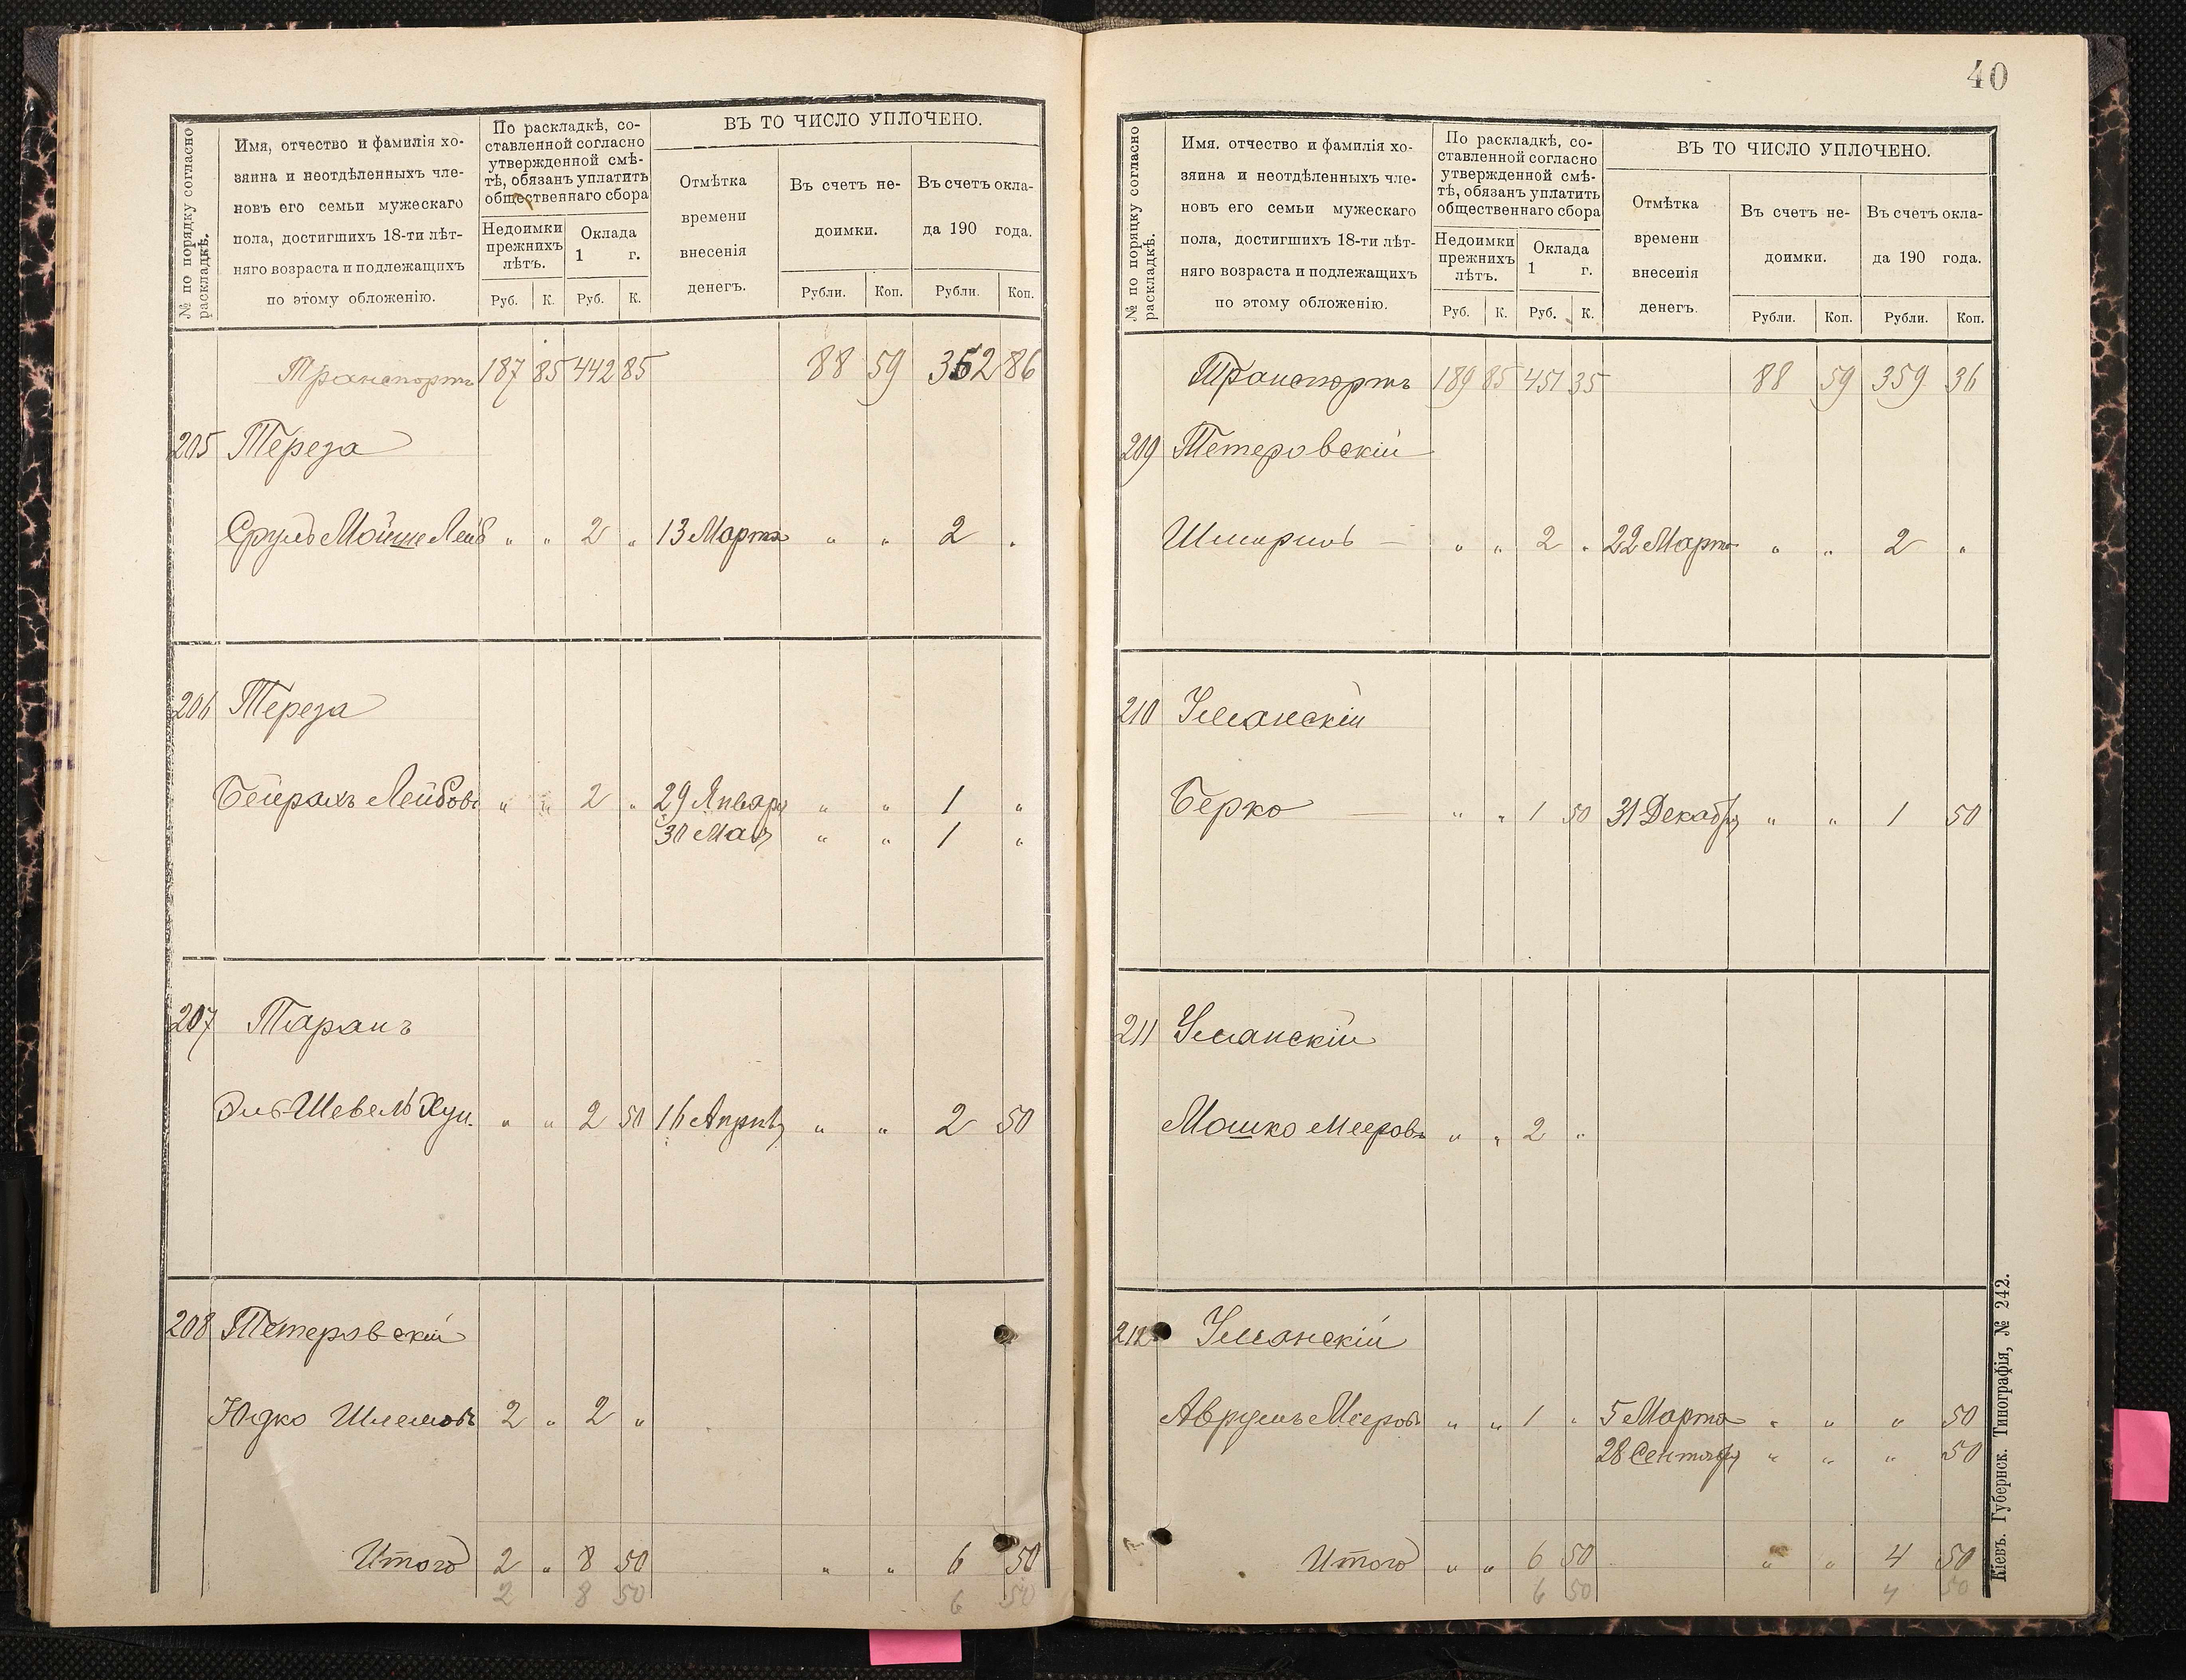 № по порядку согласно раскладкѣ.
Имя, отчество и фамилія хо-
зяина и неотдѣленныхъ чле-
новъ его семьи мужескаго
пола, достигшихъ 18-ти лѣт-
няго возраста и подлежащихъ
по этому обложенію.
По раскладкѣ, со-
ставленной согласно
утвержденной смѣ-
тѣ, обязанъ уплатить
общественнаго сбора
Недоимки
прежнихъ
лѣтъ.
Оклада
1 г.
Руб. К. Руб. К.
ВЪ ТО ЧИСЛО УПЛОЧЕНО.
Отмѣтка
времени
внесенія
денегъ.
Въ счетъ не-
доимки.
Въ счетъ окла-
да 190 года.
Рубли. Коп. Рубли. Коп.
Транспортъ 187 85 442 85 88 59 352 86
205 Тереза
Сруль Мойше Лейб " " 2 " 13 Марта " " 2 "
206 Тереза
Бейрахъ Лейбовъ " " 2 " 29 Января " " 1 "
30 Мая " " 1 "
207 Таранъ
Эль Шевель Хун. " " 2 50 16 Апрѣля " " 2 50
208 Тетеровскій
Юдко Шлемовъ 2 " 2 "
Итого 2 " 8 50 " " 6 50
2 8 50 6 50
40
№ по порядку согласно раскладкѣ.
Имя, отчество и фамилія хо-
зяина и неотдѣленныхъ чле-
новъ его семьи мужескаго
пола, достигшихъ 18-ти лѣт-
няго возраста и подлежащихъ
по этому обложенію.
По раскладкѣ, со-
ставленной согласно
утвержденной смѣ-
тѣ, обязанъ уплатить
общественнаго сбора
Недоимки
прежнихъ
лѣтъ.
Оклада
1 г.
Руб. К. Руб. К.
ВЪ ТО ЧИСЛО УПЛОЧЕНО.
Отмѣтка
времени
внесенія
денегъ.
Въ счетъ не-
доимки.
Въ счетъ окла-
да 190 года.
Рубли. Коп. Рубли. Коп.
Транспортъ 189 85 451 35 88 59 359 36
209 Тетеровскій
— " " 2 " 22 Марта " " 2 "
210 Уманскій
Берко — " " 1 50 31 Декабря " " 1 50
211 Уманскій
Мошко Мееровъ " " 2 "
212 Уманскій
Аврумъ Мееровъ " " 1 " 5 Марта " " " 50
28 Сентября " " " 50
Итого " " 6 50 " " 4 50
6 50 4 50
Кіевъ. Губернск. Типографія, № 242.